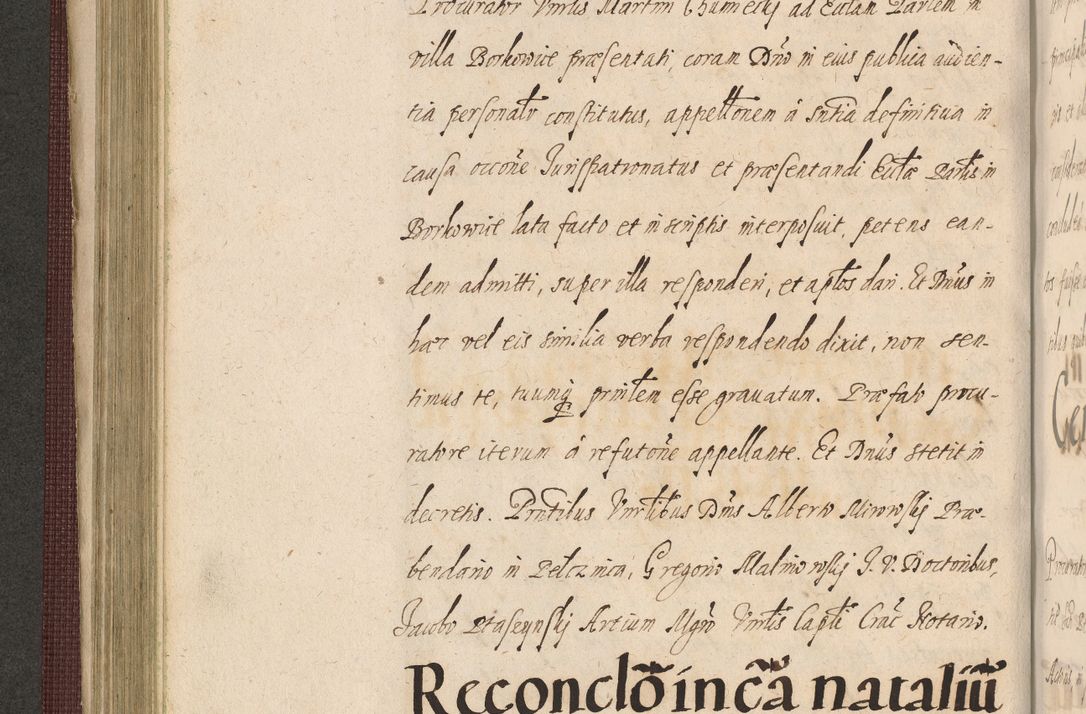 Procurator Vnrlis Martini Chumecky ad Ecclam Parlem in
villa Borkowice præsentati, coram Dño in eius publica audien-
tia personalr constitutus, appellonem á sntia definitiua in
causa occoñe Jurispatronatus et præsentandi Ecclæ Parlis in
Borkowice lata facto et in scriptis interposuit, petens ean-
dem admitti, super illa responderi, et aplos dari. Et Dnus in
hæc vel eis similia verba respondendo dixit, non sen-
timus te, tuumq prinlem esse grauatum. Præfato procu-
ratore iterum á refutoñe appellante. Et Dnus stetit in
decretis. Pntibus Vnrlibus Dnis Alberto Mirowskij Præ-
bendario in Pelcznica, Gregorio Malinowskij J. V. Doctoribus,
Jacobo Ptaszynskij Artium Mgro Vnrlis Capli Crac Notario.
Reconclõ in cã nataliũ